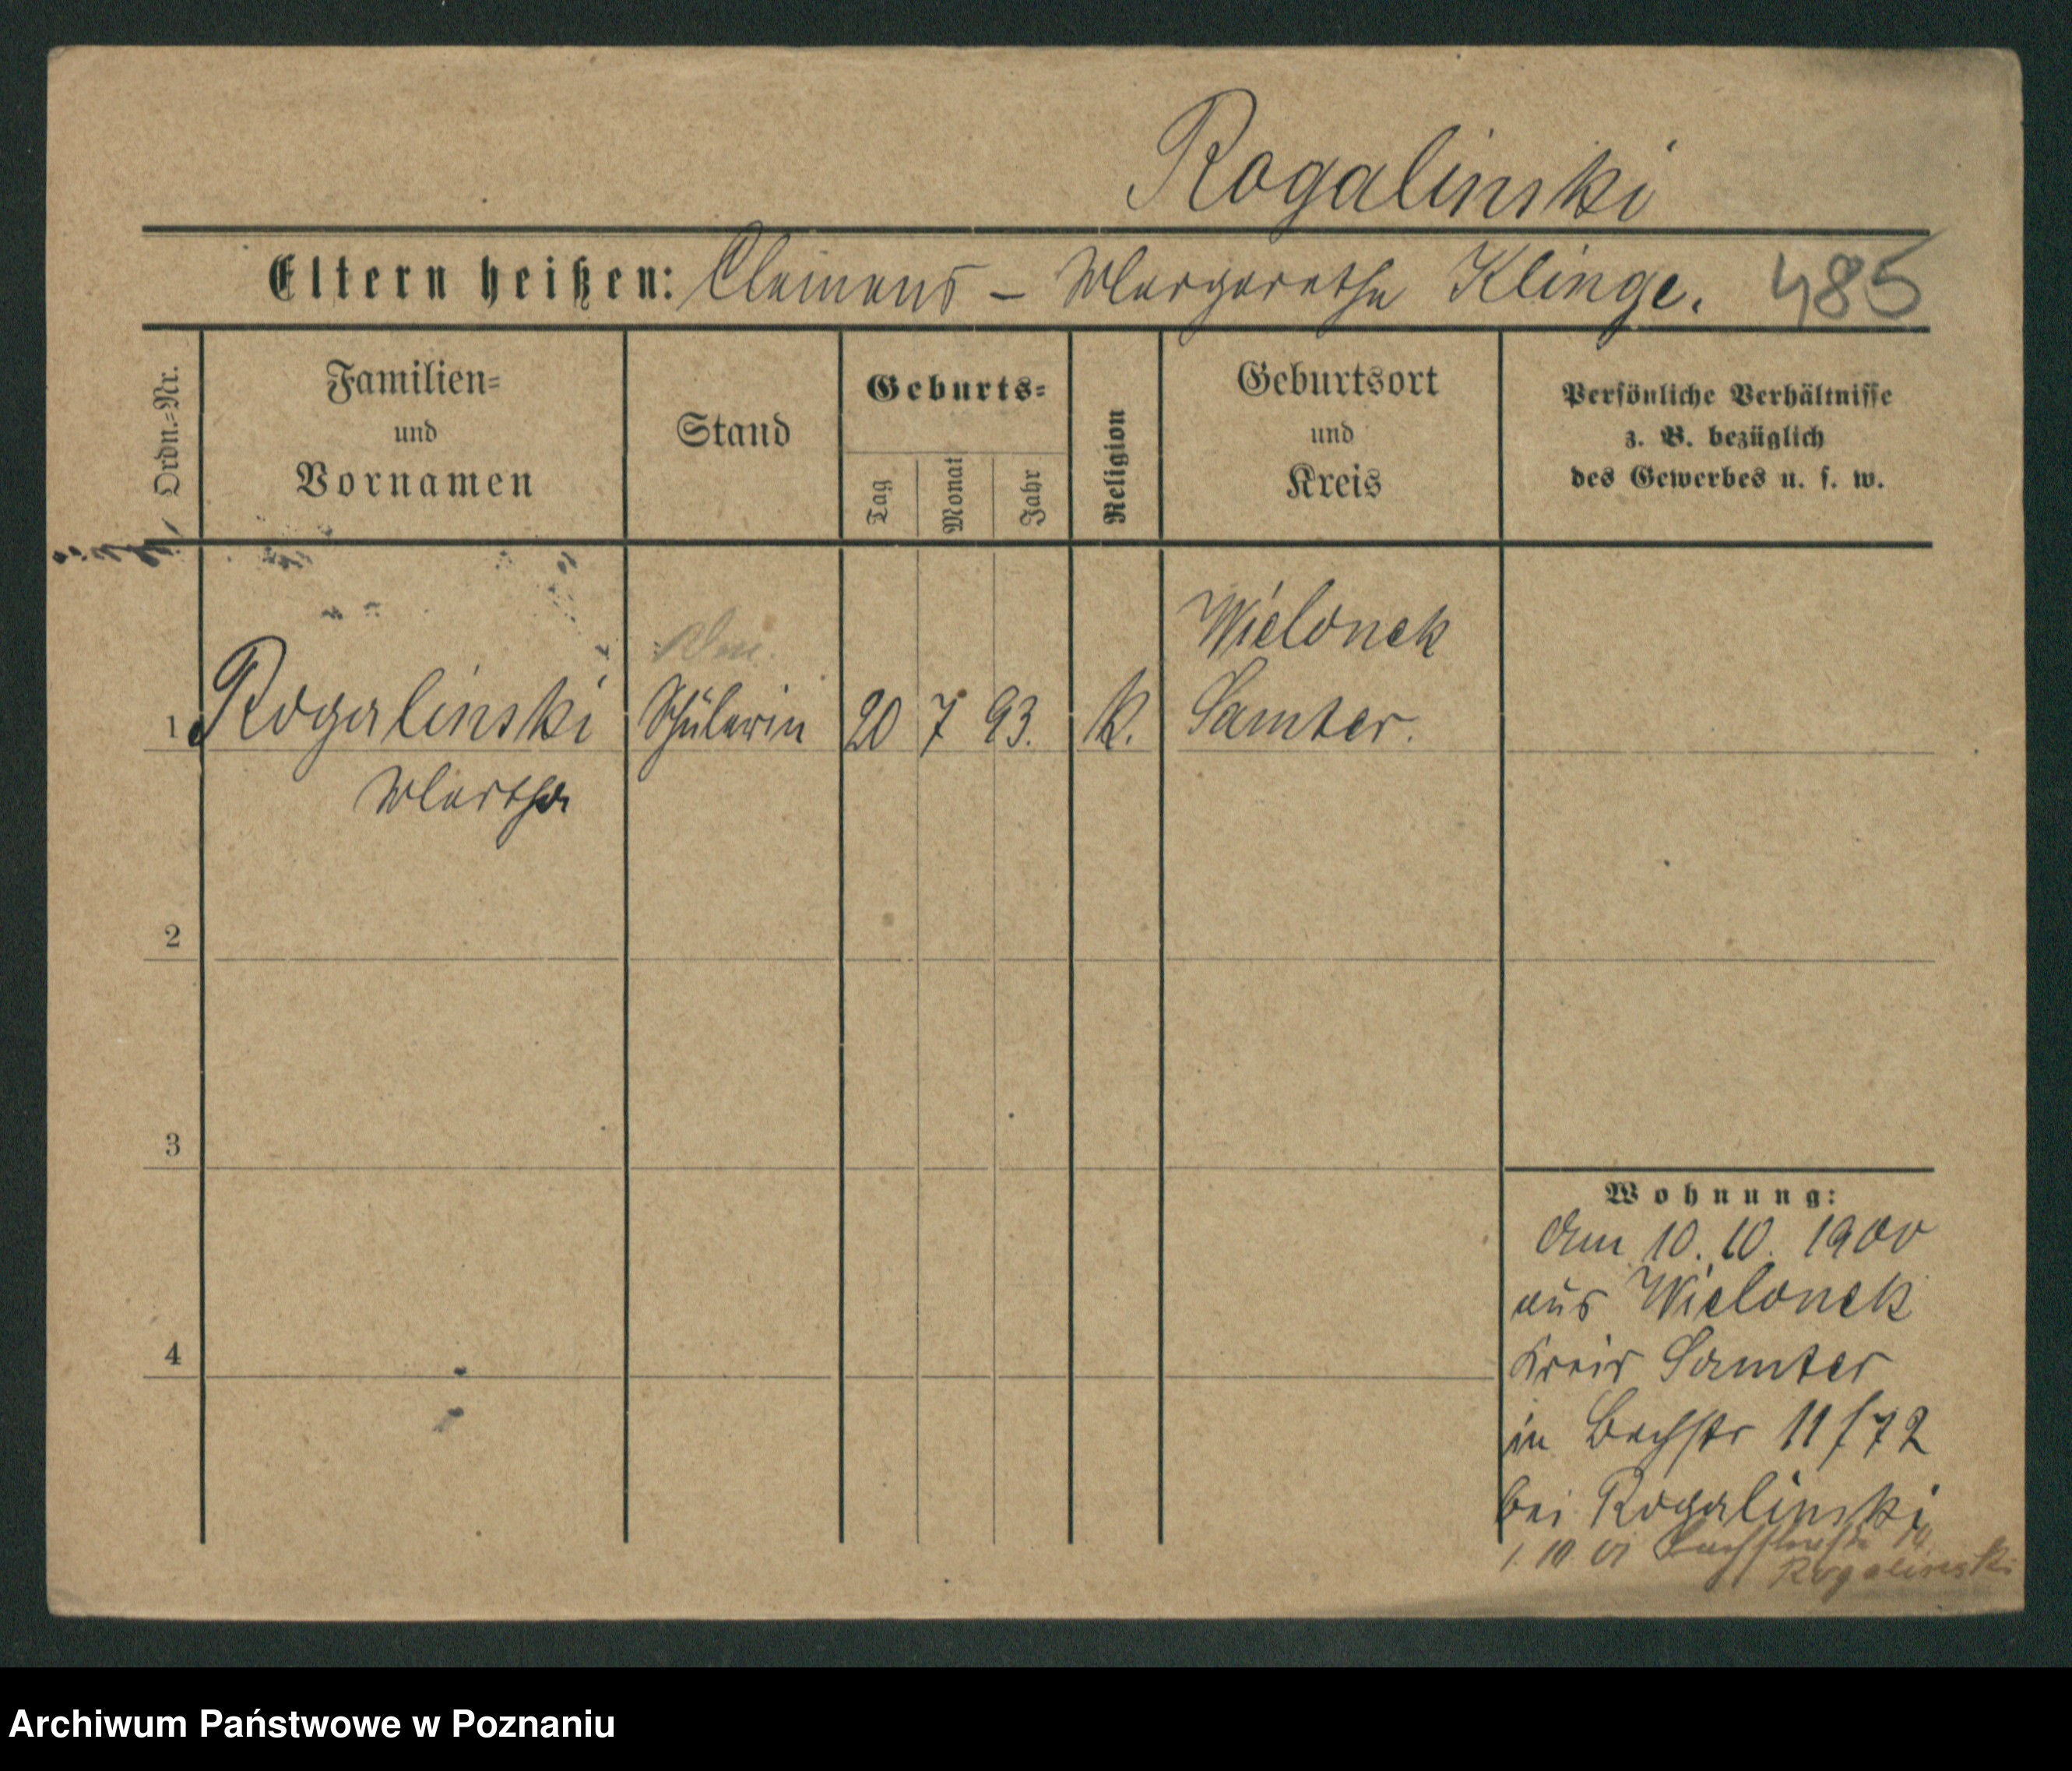 Rogalinski
Eltern heißen: Clemens – Margarethe Klinge. 485
Ordn.=Nr.
Familien=
und
Vornamen
Stand
Geburts=
Tag
Monat
Jahr
Religion
Geburtsort
und
Kreis
Persönliche Verhältnisse
z. B. bezüglich
des Gewerbes u. s. w.
Wielonek
1 Rogalinski Schülerin 20 7 93. K. Samter.
Martha
2
3
4
Wohnung:
Am 10. 10. 1900
aus Wielonek
Kreis Samter
in Bachstr 11/72
bei Rogalinski
1. 10 01 Bachstraße
Rogalinski
Archiwum Państwowe w Poznaniu